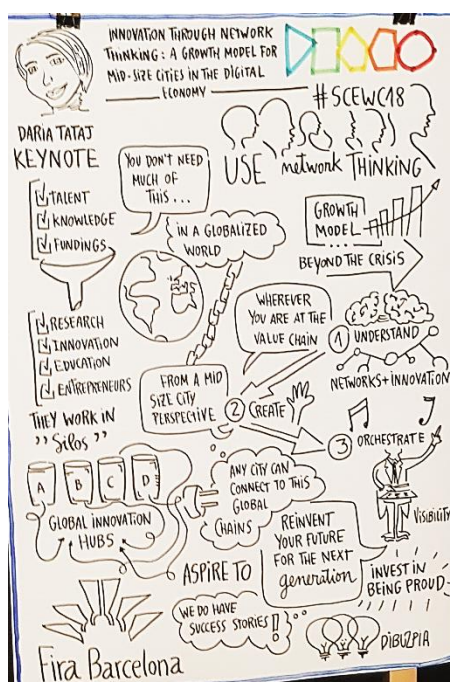 INNOVATION THROUGH NETWORK
THINKING: A GROWTH MODEL FOR
MID-SIZE CITIES IN THE DIGITAL
ECONOMY
#SCEWC18
DARIA TATAJ
KEYNOTE
USE network THINKING
YOU DON'T NEED
MUCH OF
THIS...
TALENT
KNOWLEDGE
FUNDINGS
IN A GLOBALIZED
WORLD
GROWTH
MODEL...
BEYOND THE CRISIS
RESEARCH
INNOVATION
EDUCATION
ENTREPRENEURS
WHEREVER
YOU ARE AT THE
VALUE CHAIN
1 UNDERSTAND
NETWORKS+INNOVATION
FROM A MID
SIZE CITY
PERSPECTIVE
2 CREATE
3 ORCHESTRATE
THEY WORK IN
"Silos"
A B C D
GLOBAL INNOVATION
HUBS
ANY CITY CAN
CONNECT TO THIS
GLOBAL
CHAINS
VISIBILITY
ASPIRE TO
REINVENT
YOUR FUTURE
FOR THE NEXT
generation
INVEST IN
BEING PROUD
WE DO HAVE
SUCCESS STORIES!!
DIBUZPIA
Fira Barcelona